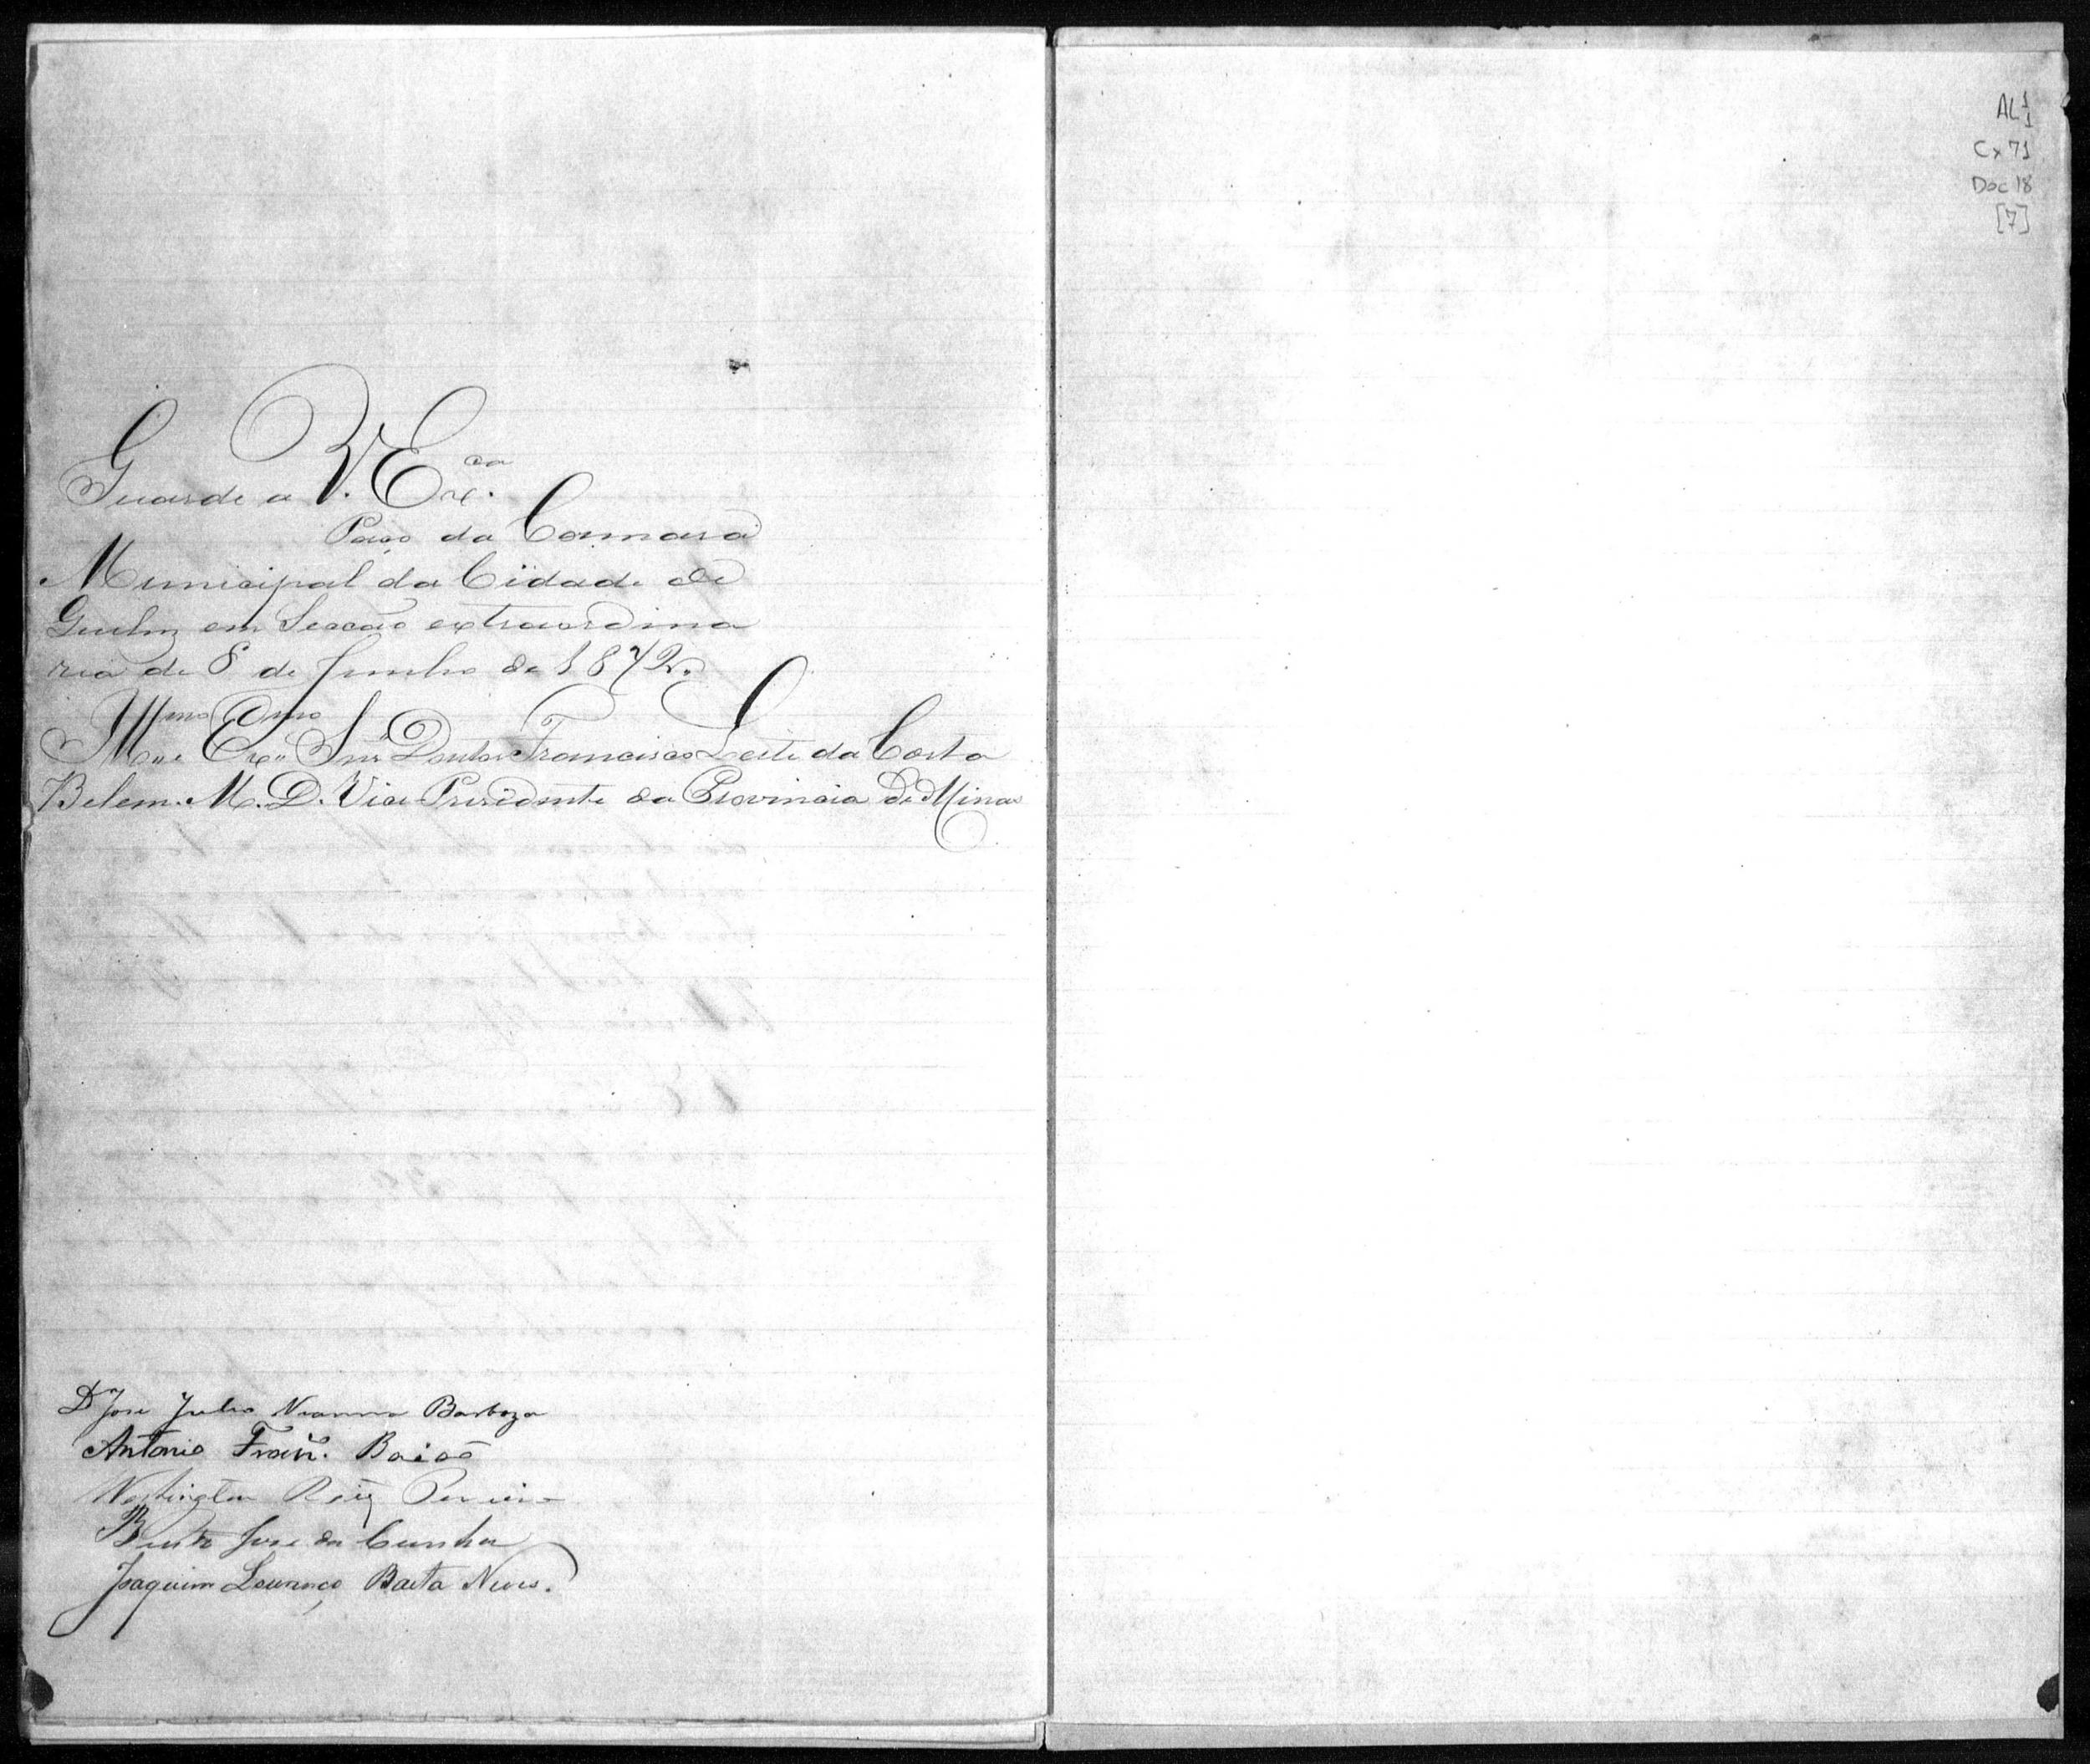 Guarde a V. Exᶜⁱᵃ.
Paço da Camara
Municipal da Cidade de
Queluz em Secção extraordina
ria de 8 de Junho de 1872.
Illmo e Exmo Snr Doutor Francisco Leite da Costa
Belem. M. D. Vice Presidente da Provincia de Minas
Dr José Julio Vianna Barboza
Antonio Franco. Baião
Washington Roiz Pereira
Bento José da Cunha
Joaquim Lourenço Baeta Neves.
AL 1 1
Cx 71
Doc 18
[7]